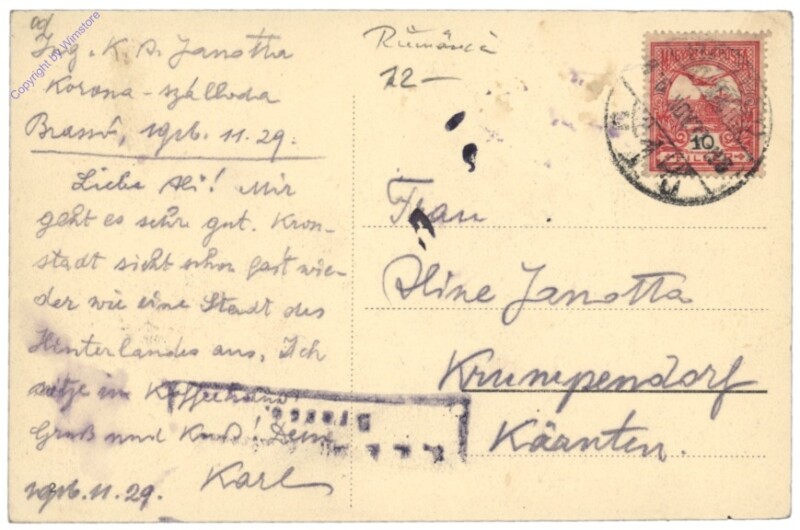 Ing. K. A. Janotta
Korona-szálloda
Brassó, 1916. 11. 29.
Liebe Ali! Mir
geht es sehr gut. Kron-
stadt sieht schon fast wie-
der wie eine Stadt des
Hinterlandes aus. Ich
sitze im Kaffeehaus!
Gruß und Kuß! Dein
Karl
1916. 11. 29.
12-
10
Frau
Aline Janotta
Krumpendorf
Kärnten.
Copyright by Wimstore